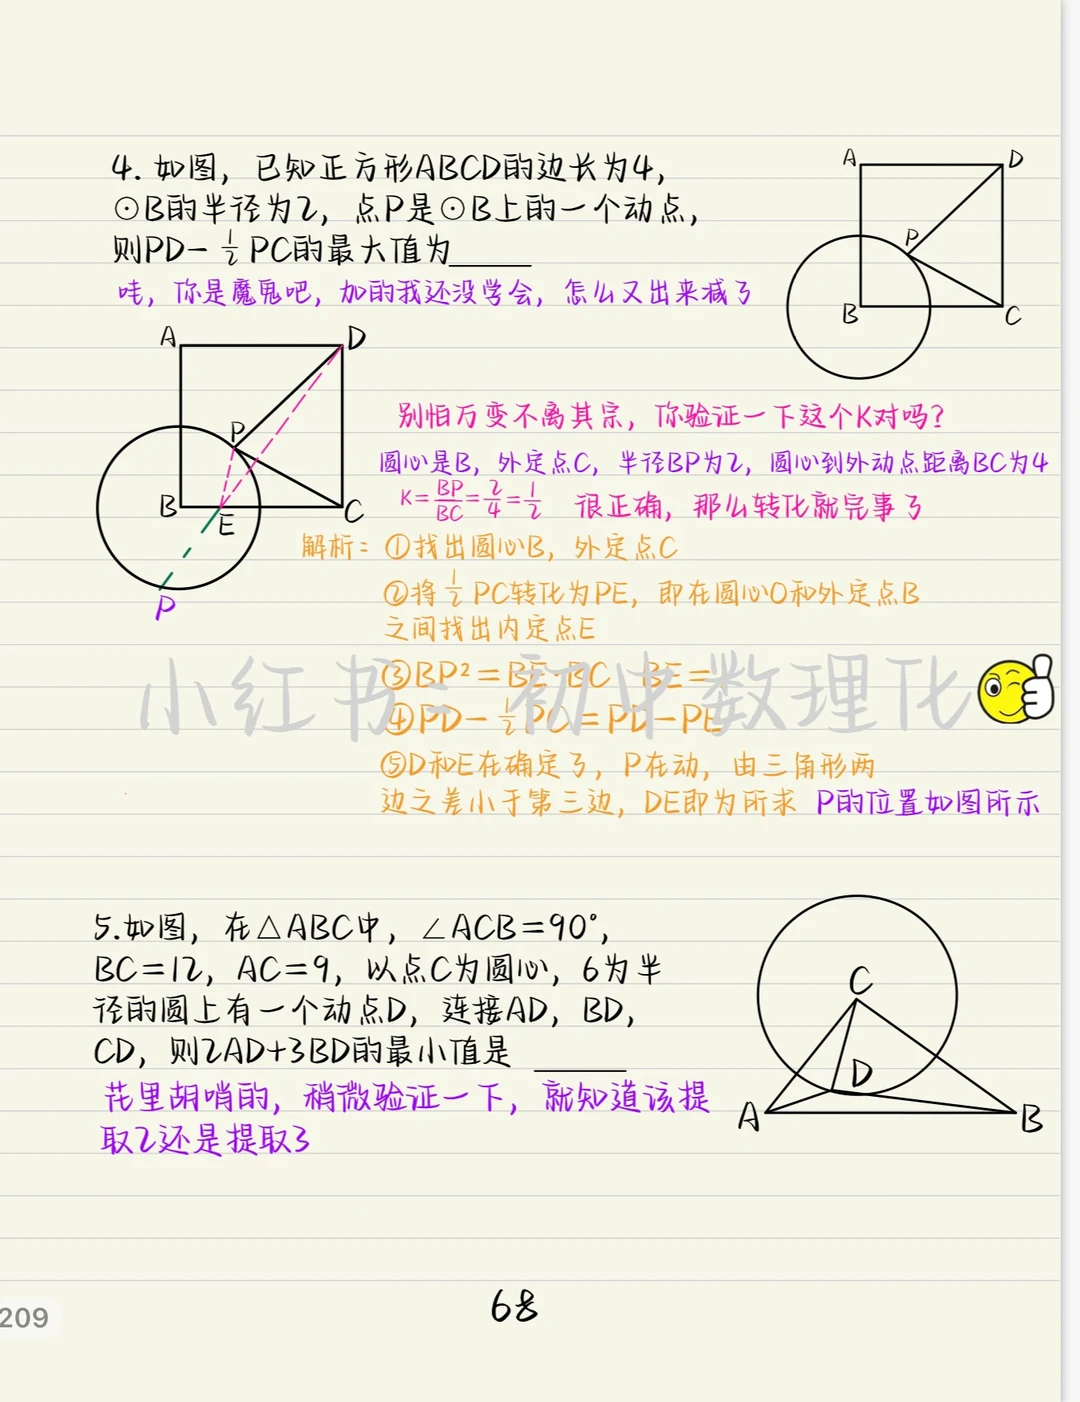 4. 如图，已知正方形ABCD的边长为4，
⊙B的半径为2，点P是⊙B上的一个动点，
则PD－½PC的最大值为____
哇，你是魔鬼吧，加的我还没学会，怎么又出来减了
A
D
P
B
C
A
D
P
B
E
C
P
别怕万变不离其宗，你验证一下这个K对吗？
圆心是B，外定点C，半径BP为2，圆心到外动点距离BC为4
K=BP/BC=2/4=1/2 很正确，那么转化就完事了
解析：①找出圆心B，外定点C
②将½PC转化为PE，即在圆心O和外定点B
之间找出内定点E
③BP²=BE·BC BE=
④PD－½PC=PD－PE
⑤D和E在确定了，P在动，由三角形两
边之差小于第三边，DE即为所求 P的位置如图所示
小红书：初中数理化
5.如图，在△ABC中，∠ACB=90°，
BC=12，AC=9，以点C为圆心，6为半
径的圆上有一个动点D，连接AD，BD，
CD，则2AD+3BD的最小值是 ____
花里胡哨的，稍微验证一下，就知道该提
取2还是提取3
C
D
A
B
68
209